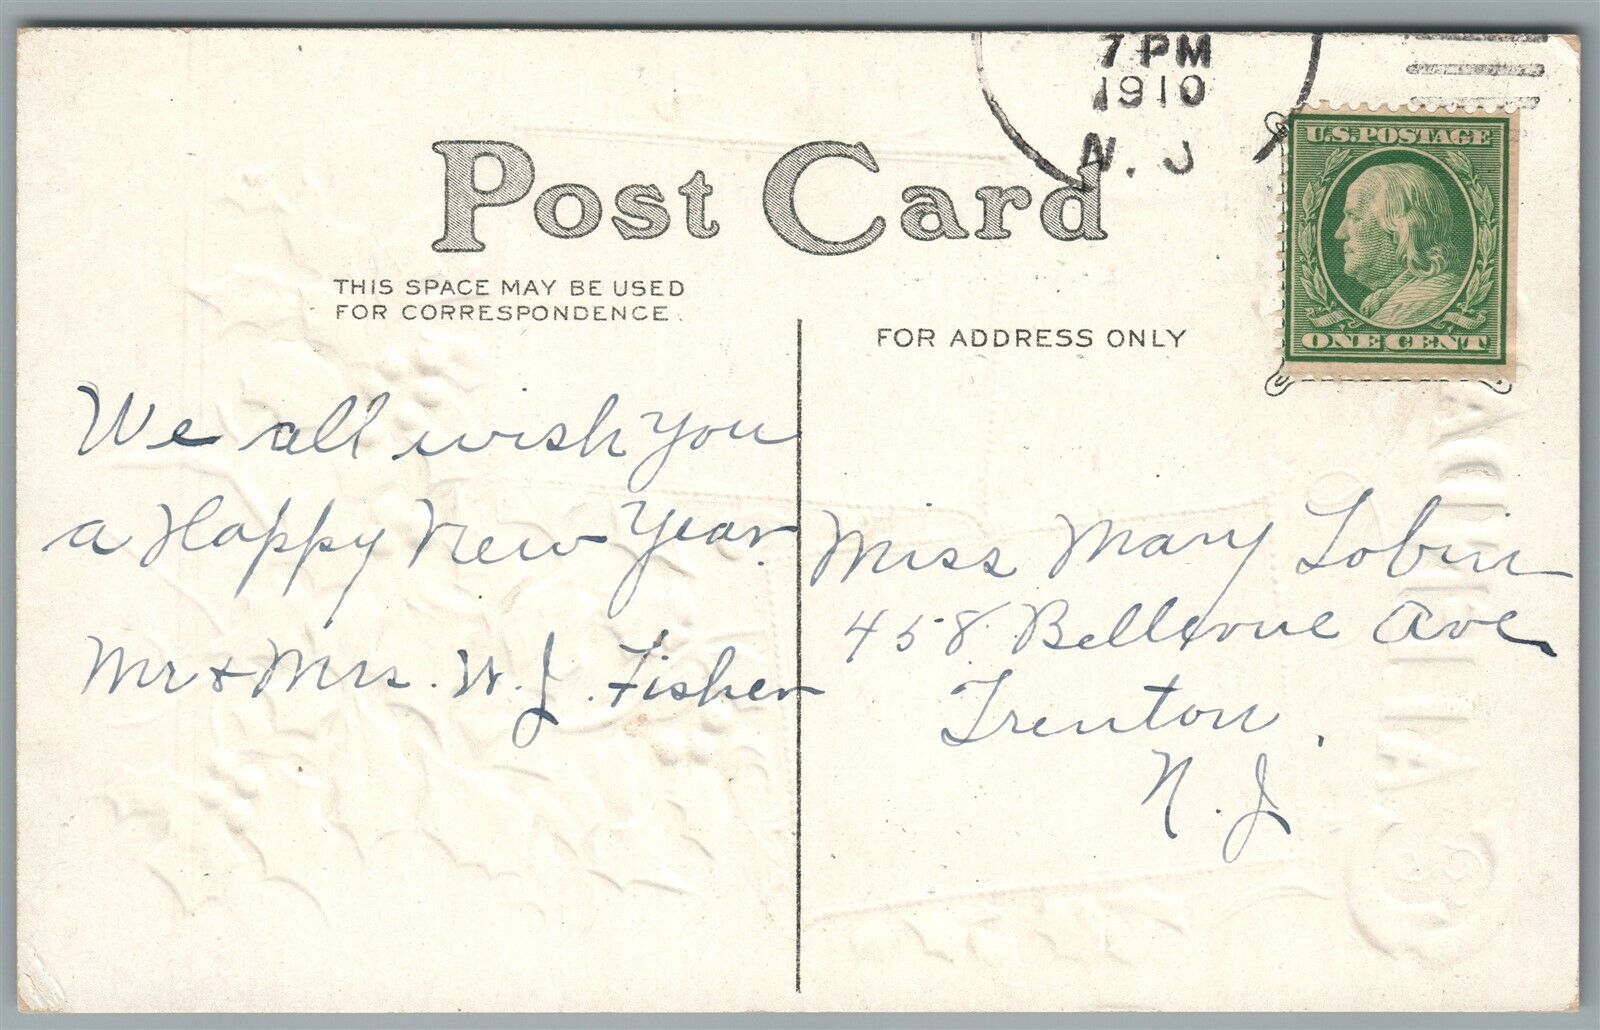 7 PM
1910
N. J
U.S. POSTAGE
ONE CENT
Post Card
THIS SPACE MAY BE USED
FOR CORRESPONDENCE.
FOR ADDRESS ONLY
We all wish you
a Happy New Year.
Mr & Mrs. W. J. Fisher
Miss Mary Tobin
458 Bellevue Ave
Trenton,
N. J.